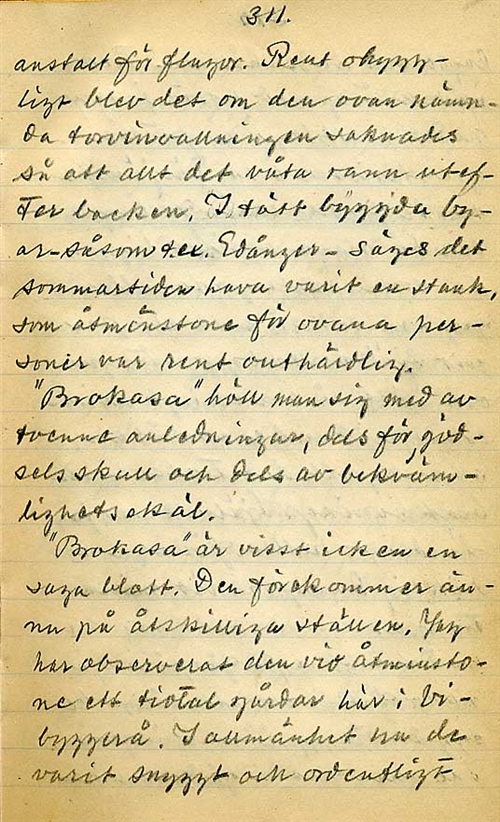 311.
anstalt för flugor. Rent ohygg-
ligt blev det om den ovan nämn-
da torvinvallningen saknades
så att allt det våta rann utef-
ter backen. I tätt byggda by-
ar - såsom t.ex. Edånger - säges det
sommartiden hava varit en stank,
som åtminstone för ovana per-
soner var rent outhärdlig.
"Brokasa" höll man sig med av
tvenne anledningar, dels för göd-
sels skull och dels av bekväm-
lighetsskäl.
"Brokasa" är visst icken en
saga blott. Den förekommer än-
nu på åtskilliga ställen. Jag
har observerat den vid åtminsto-
ne ett tiotal gårdar här i Vi-
byggerå. I allmänhet ha de
varit snyggt och ordentligt